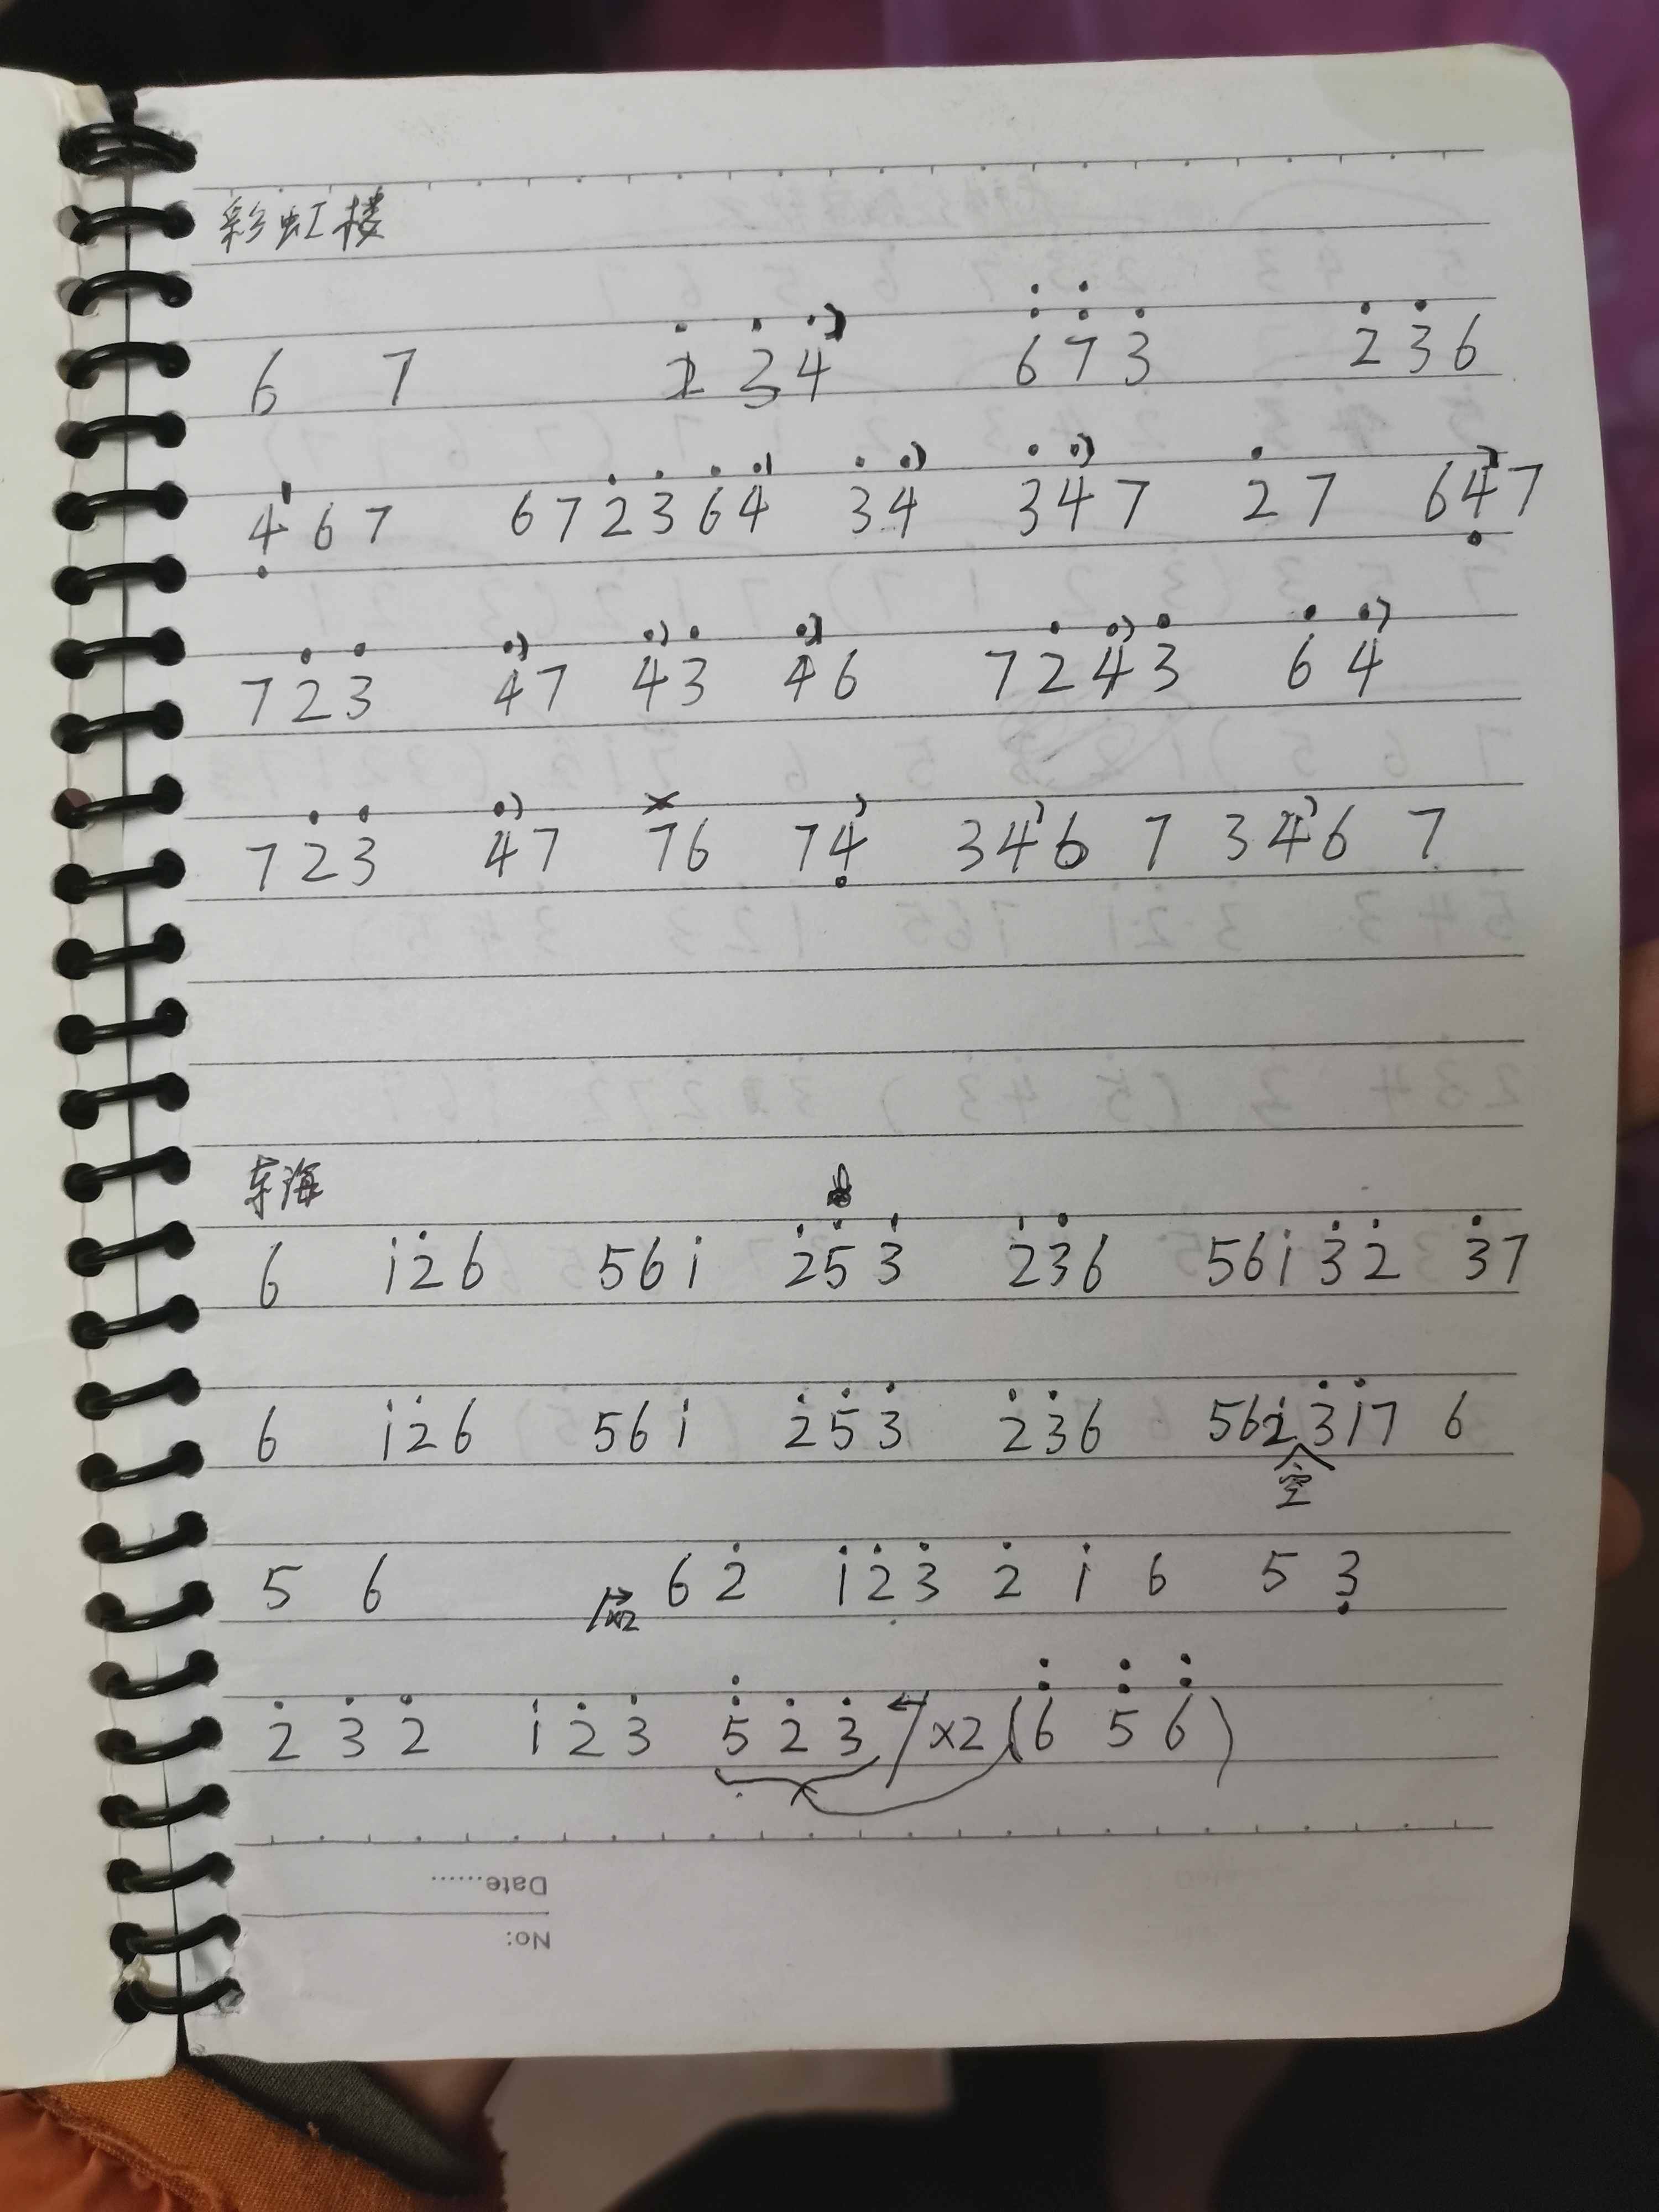 彩虹楼
6 7 2̇ 3̇ 4̇ 6̈ 7̈ 3̇ 2̇ 3̇ 6
4̣ 6 7 6 7 2̇ 3̇ 6̇ 4̇ 3̇ 4̇ 3̇ 4̇ 7 2̇ 7 6 4̣ 7
7 2̇ 3̇ 4̇ 7 4̇ 3̇ 4̇ 6 7 2̇ 4̇ 3̇ 6̇ 4̇
7 2̇ 3̇ 4̇ 7 7 6 7 4̣ 3 4 6 7 3 4 6 7
东海
6 i 2̇ 6 5 6 i 2̇ 5̇ 3̇ 2̇ 3̇ 6 5 6 i 3̇ 2̇ 3̇ 7
6 i 2̇ 6 5 6 i 2̇ 5̇ 3̇ 2̇ 3̇ 6 5 6 2̇ 3̇ i 7 6
空
5 6 x2 6 2̇ i 2̇ 3̇ 2̇ i 6 5 3̣
2̇ 3̇ 2̇ i 2̇ 3̇ 5̈ 2̇ 3̇ /x2 (6̈ 5̈ 6̈)
Date......
No: